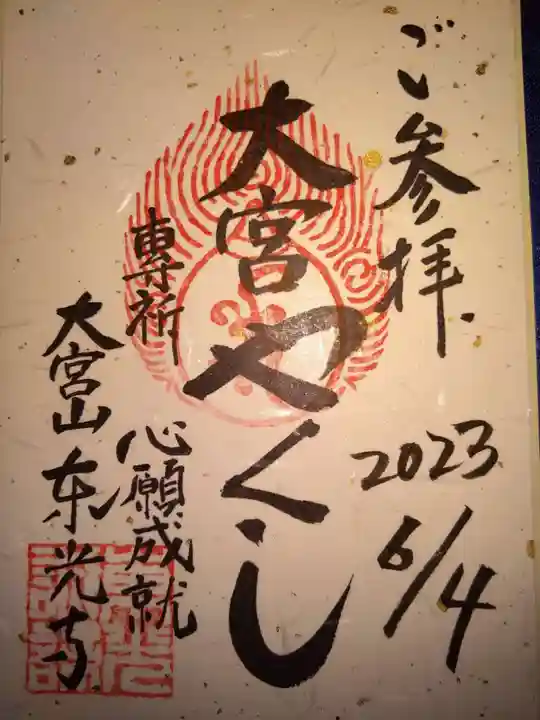 ご参拝
2023
6/4
大宮やくし
専祈
心願成就
大宮山東光寺